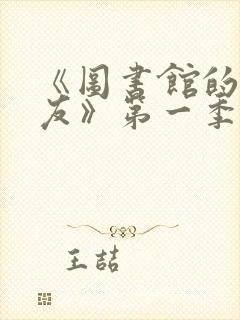 《圖書館的
友》第一季
王喆